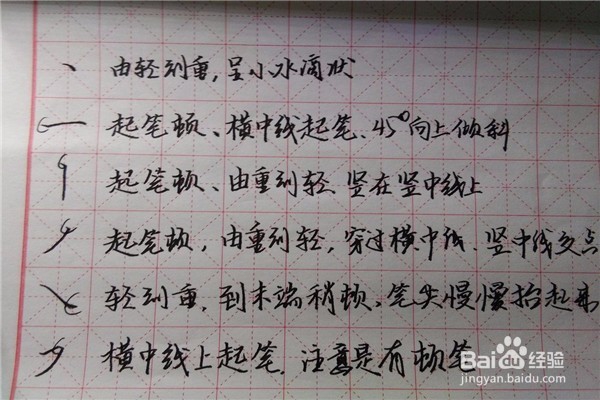 丶 由轻到重,呈小水滴状
一 起笔顿、横中线起笔、45°向上倾斜
丨 起笔顿、由重到轻、竖在竖中线上
丿 起笔顿,由重到轻,穿过横中线、竖中线交点
㇏ 轻到重,到末端稍顿、笔尖慢慢抬起来
横中线上起笔、注意是有顿笔
Baidu经验
jingyan.baidu.com